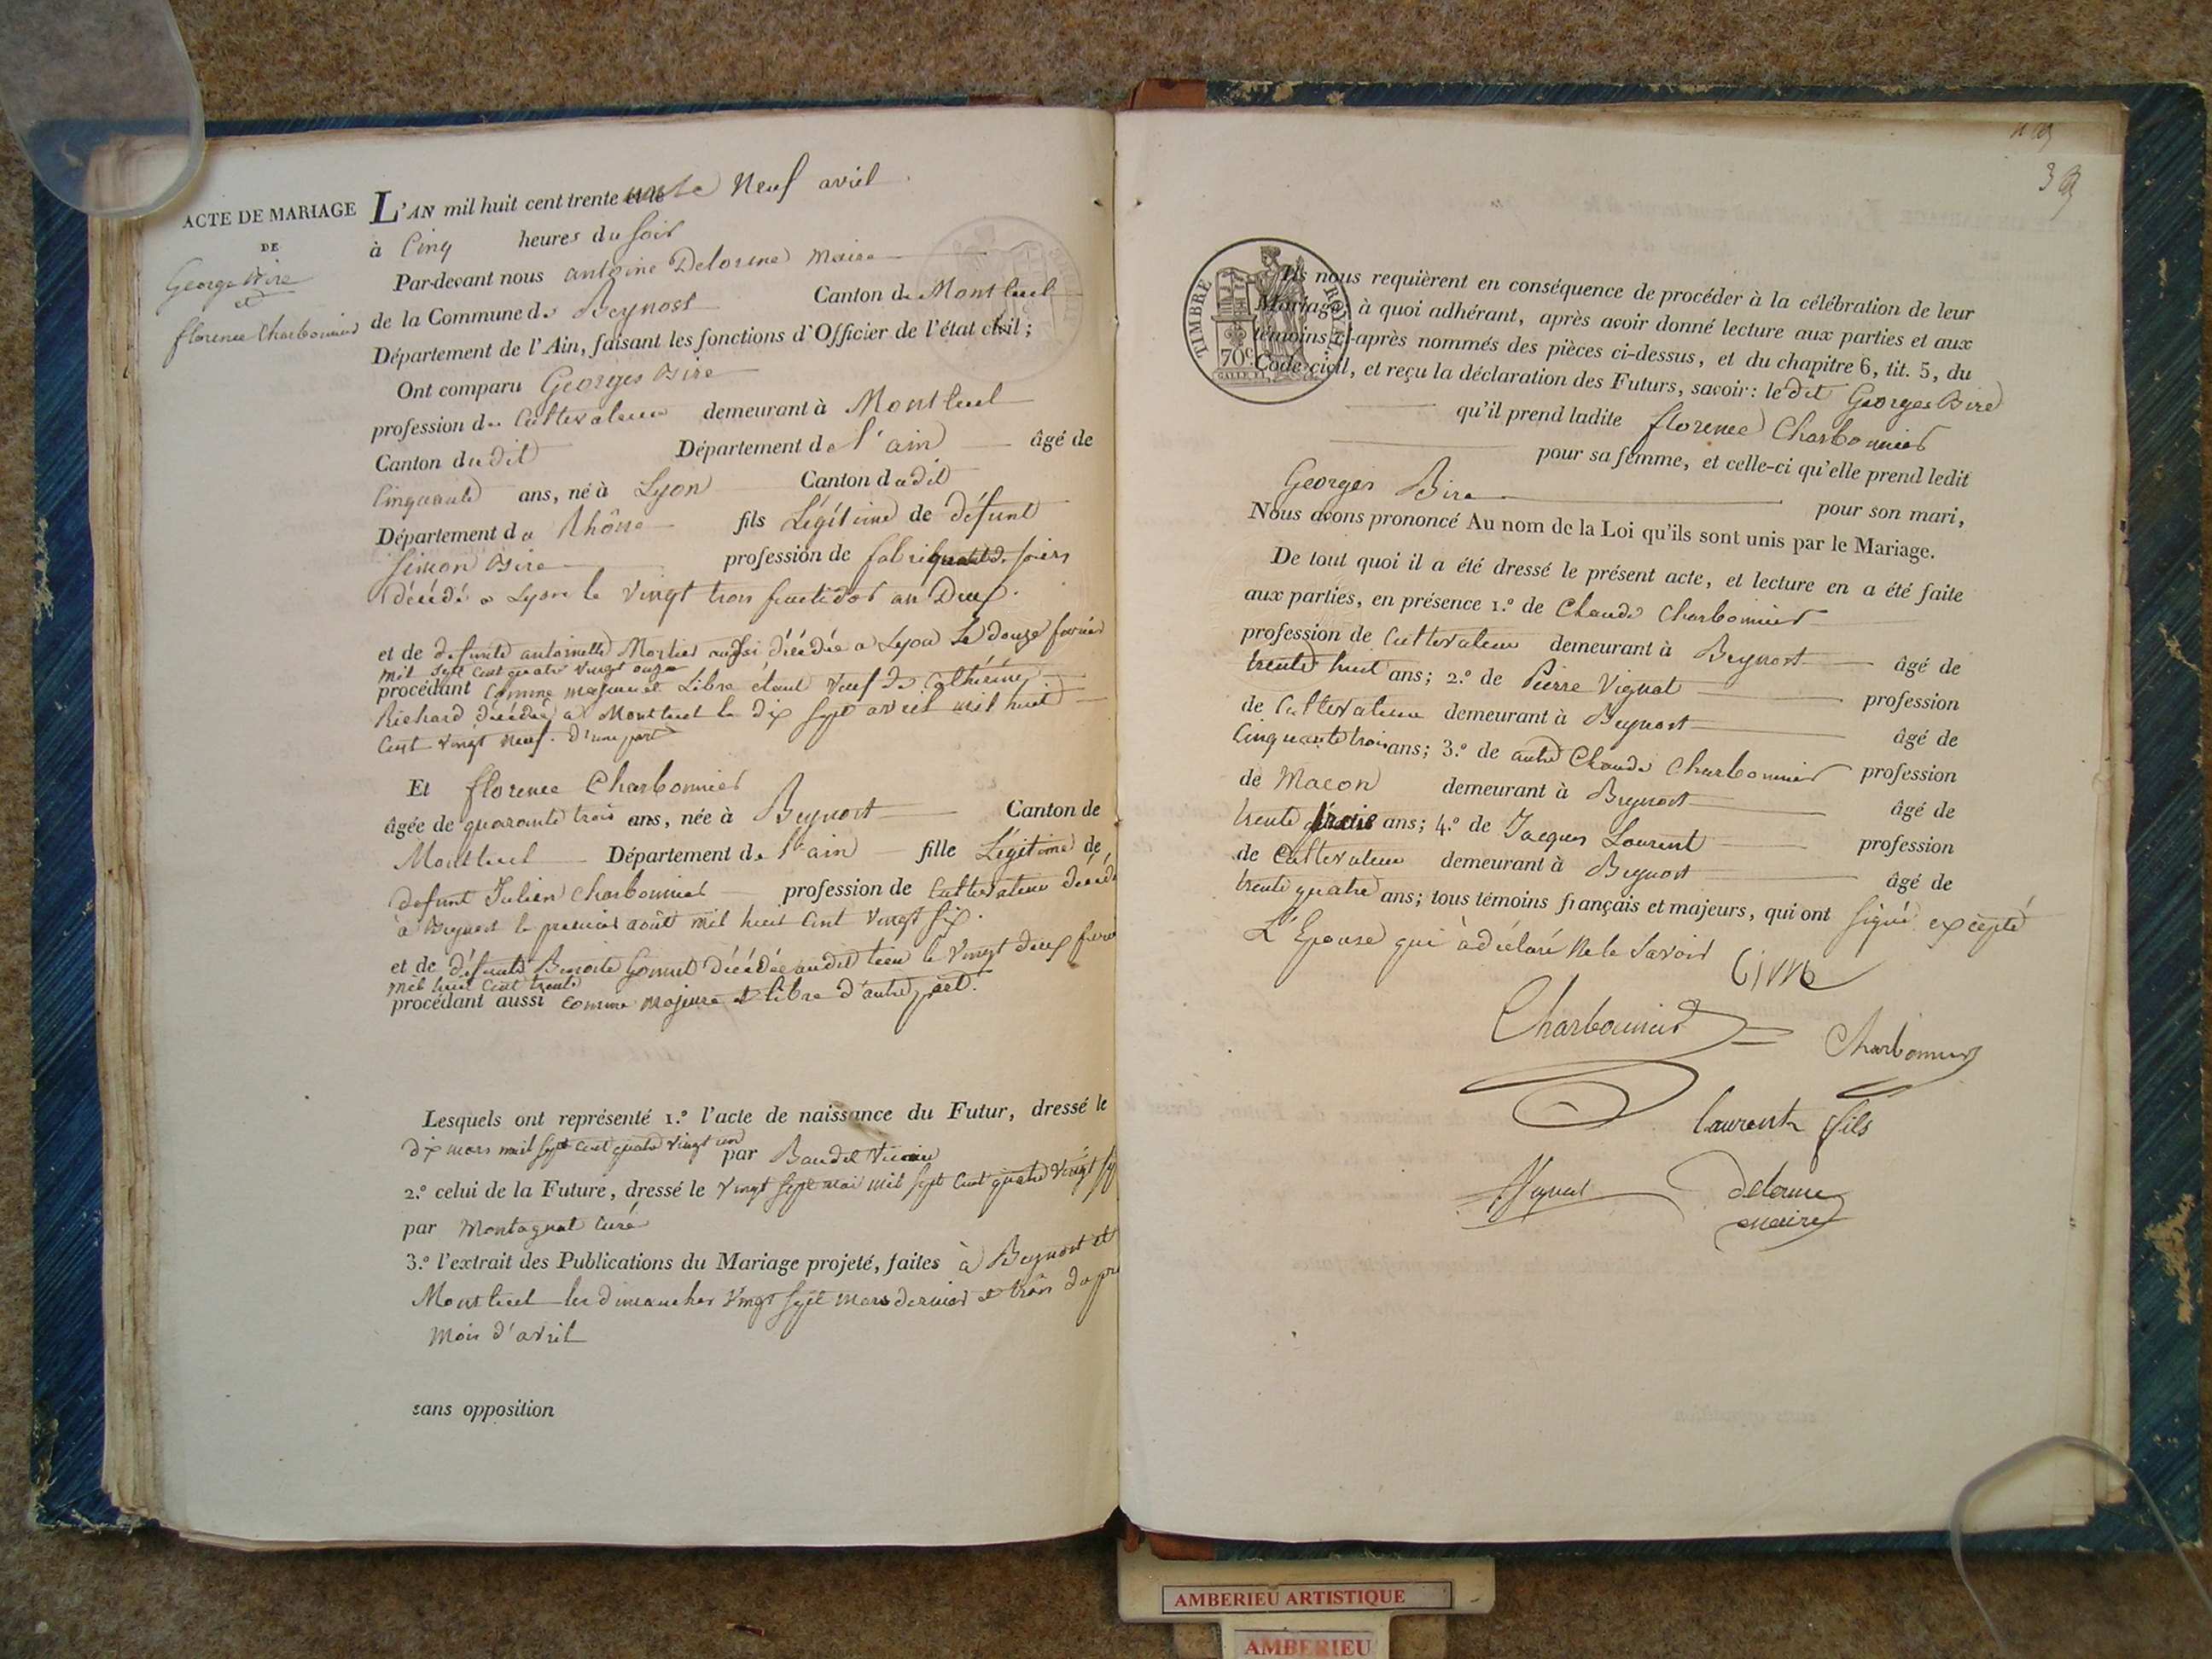 ACTE DE MARIAGE
DE
George Bire
et
florence Charbonnier
L'AN mil huit cent trente et un le Neuf avril
à Cinq heures du soir
Par-devant nous antoine Delorme maire
de la Commune de Beynost Canton de Montluel
Département de l'Ain, faisant les fonctions d'Officier de l'état civil ;
Ont comparu Georges Bire
profession de Cultivateur demeurant à Montluel
Canton dudit Département de l'ain âgé de
Cinquante ans, né à Lyon Canton dudit
Département du Rhône fils Légitime de défunt
Simon Bire profession de fabriquant de soies
décédé a Lyon le vingt trois fructidor an Deux.
et de defunte antoinette Mortier aussi décédée a Lyon le douze fevrier
mil sept cent quatre vingt onze
procédant comme majeur et Libre étant veuf de Cathérine
Richard décédée a Montluel le dix sept avril mil huit
Cent vingt neuf. d'une part
Et florence Charbonnier
âgée de quarante trois ans, née à Beynost Canton de
Montluel Département de l'ain fille Légitime de
defunt Julien Charbonnier profession de Cultivateur décédé
à Beynost le premier août mil huit Cent vingt six.
et de défunte Benoite décédée audit lieu le vingt deux
mil huit Cent trente
procédant aussi comme majeure et libre d'autre part.
Lesquels ont représenté 1.º l'acte de naissance du Futur, dressé le
dix mars mil sept cent quatre vingt un par Baudel vicaire
2.º celui de la Future, dressé le vingt sept mai mil sept Cent quatre vingt
par Montagnat Curé
3.º l'extrait des Publications du Mariage projeté, faites à Beynost et
Montluel les dimanches vingt sept mars dernier et trois du
mois d'avril
sans opposition
39
TIMBRE ROYAL
70c
Ils nous requièrent en conséquence de procéder à la célébration de leur
Mariage ; à quoi adhérant, après avoir donné lecture aux parties et aux
témoins ci-après nommés des pièces ci-dessus, et du chapitre 6, tit. 5, du
Code civil, et reçu la déclaration des Futurs, savoir : le dit Georges Bire
qu'il prend ladite florence Charbonnier
pour sa femme, et celle-ci qu'elle prend ledit
Georges Bire pour son mari,
Nous avons prononcé Au nom de la Loi qu'ils sont unis par le Mariage.
De tout quoi il a été dressé le présent acte, et lecture en a été faite
aux parties, en présence 1.º de Claude Charbonnier
profession de Cultivateur demeurant à Beynost âgé de
trente huit ans ; 2.º de Pierre Vignat profession
de Cultivateur demeurant à Beynost âgé de
Cinquante trois ans ; 3.º de autre Claude Charbonnier profession
de Macon demeurant à Beynost âgé de
trente trois ans ; 4.º de Jacques Laurent profession
de Cultivateur demeurant à Beynost âgé de
trente quatre ans ; tous témoins français et majeurs, qui ont signé excepté
L'Epouse qui à déclaré ne le savoir
Charbonnier
Charbonnier
laurent fils
Vignat
delorme
maire
AMBERIEU ARTISTIQUE
AMBERIEU